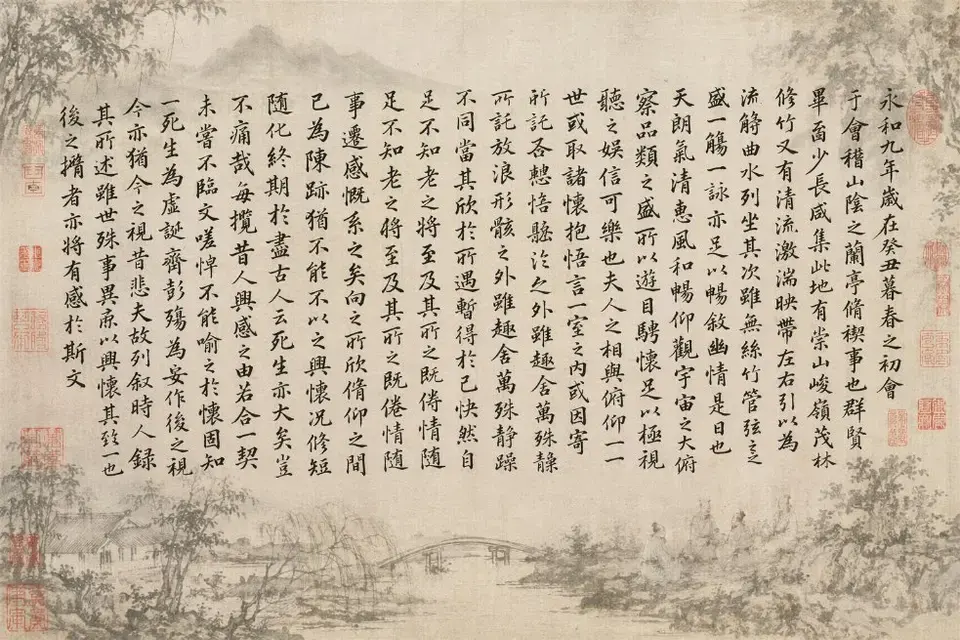 永和九年歲在癸丑暮春之初會
于會稽山陰之蘭亭脩稧事也群賢
畢面少長咸集此地有崇山峻嶺茂林
修竹又有清流激湍映帶左右引以為
流觴曲水列坐其次雖無絲竹管弦之
盛一觴一詠亦足以暢敘幽情是日也
天朗氣清惠風和暢仰觀宇宙之大俯
察品類之盛所以遊目騁懷足以極視
聽之娛信可樂也夫人之相與俯仰一一
世或取諸懷抱悟言一室之内或因寄
所託之外雖趣舍萬殊靜
所託放浪形骸之外雖趣舍萬殊静躁
不同當其欣於所遇暫得於己快然自
足不知老之將至及其所之既倦情隨
足不知老之將至及其所之既倦情隨
事遷感慨系之矣向之所欣脩仰之間
已為陳跡猶不能不以之興懷況修短
隨化終期於盡古人云死生亦大矣豈
不痛哉每攬昔人興感之由若合一契
未嘗不臨文嗟悼不能喻之於懷固知
一死生為虛誕齊彭殤為妄作後之視
今亦猶今之視昔悲夫故列敘時人錄
其所述雖世殊事異以興懷其致一也
後之攬者亦將有感於斯文